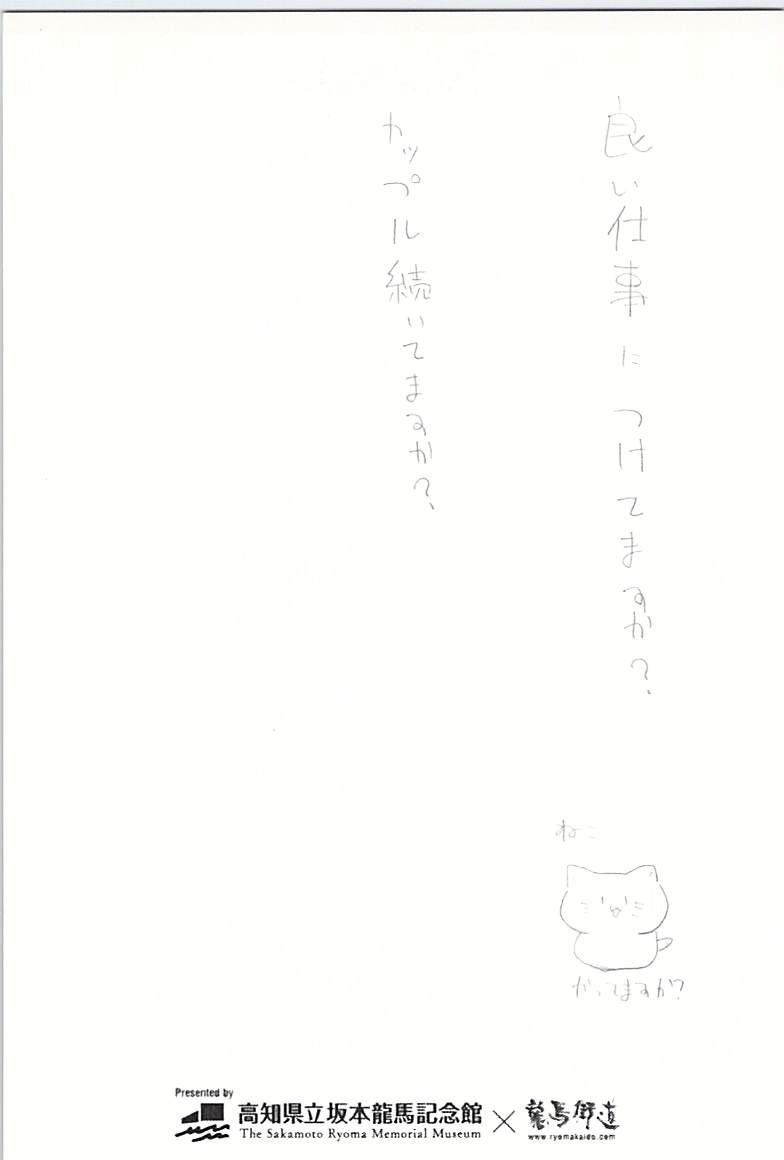 良い仕事につけてますか?
カップル続いてますか?
ねこ
かってますか?
Presented by
高知県立坂本龍馬記念館
The Sakamoto Ryoma Memorial Museum
×
龍馬街道
www.ryomakaido.com